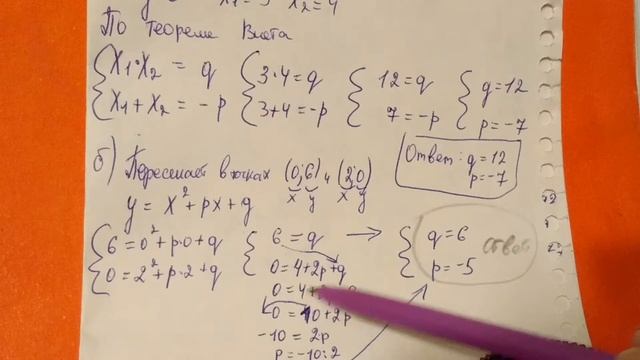 x1=3 x2=4
По теореме Виета
x1·x2 = q
x1+x2 = -p
3·4=q
3+4=-p
12=q
7=-p
q=12
p=-7
Ответ: q=12
p=-7
б) Пересекает в точках (0;6) и (2;0)
x y x y
y = x²+px+q
6=0²+p·0+q
0=2²+p·2+q
6=q
0=4+2p+q
0=4+
0=10+2p
-10=2p
p=-10:2
q=6
p=-5
ответ